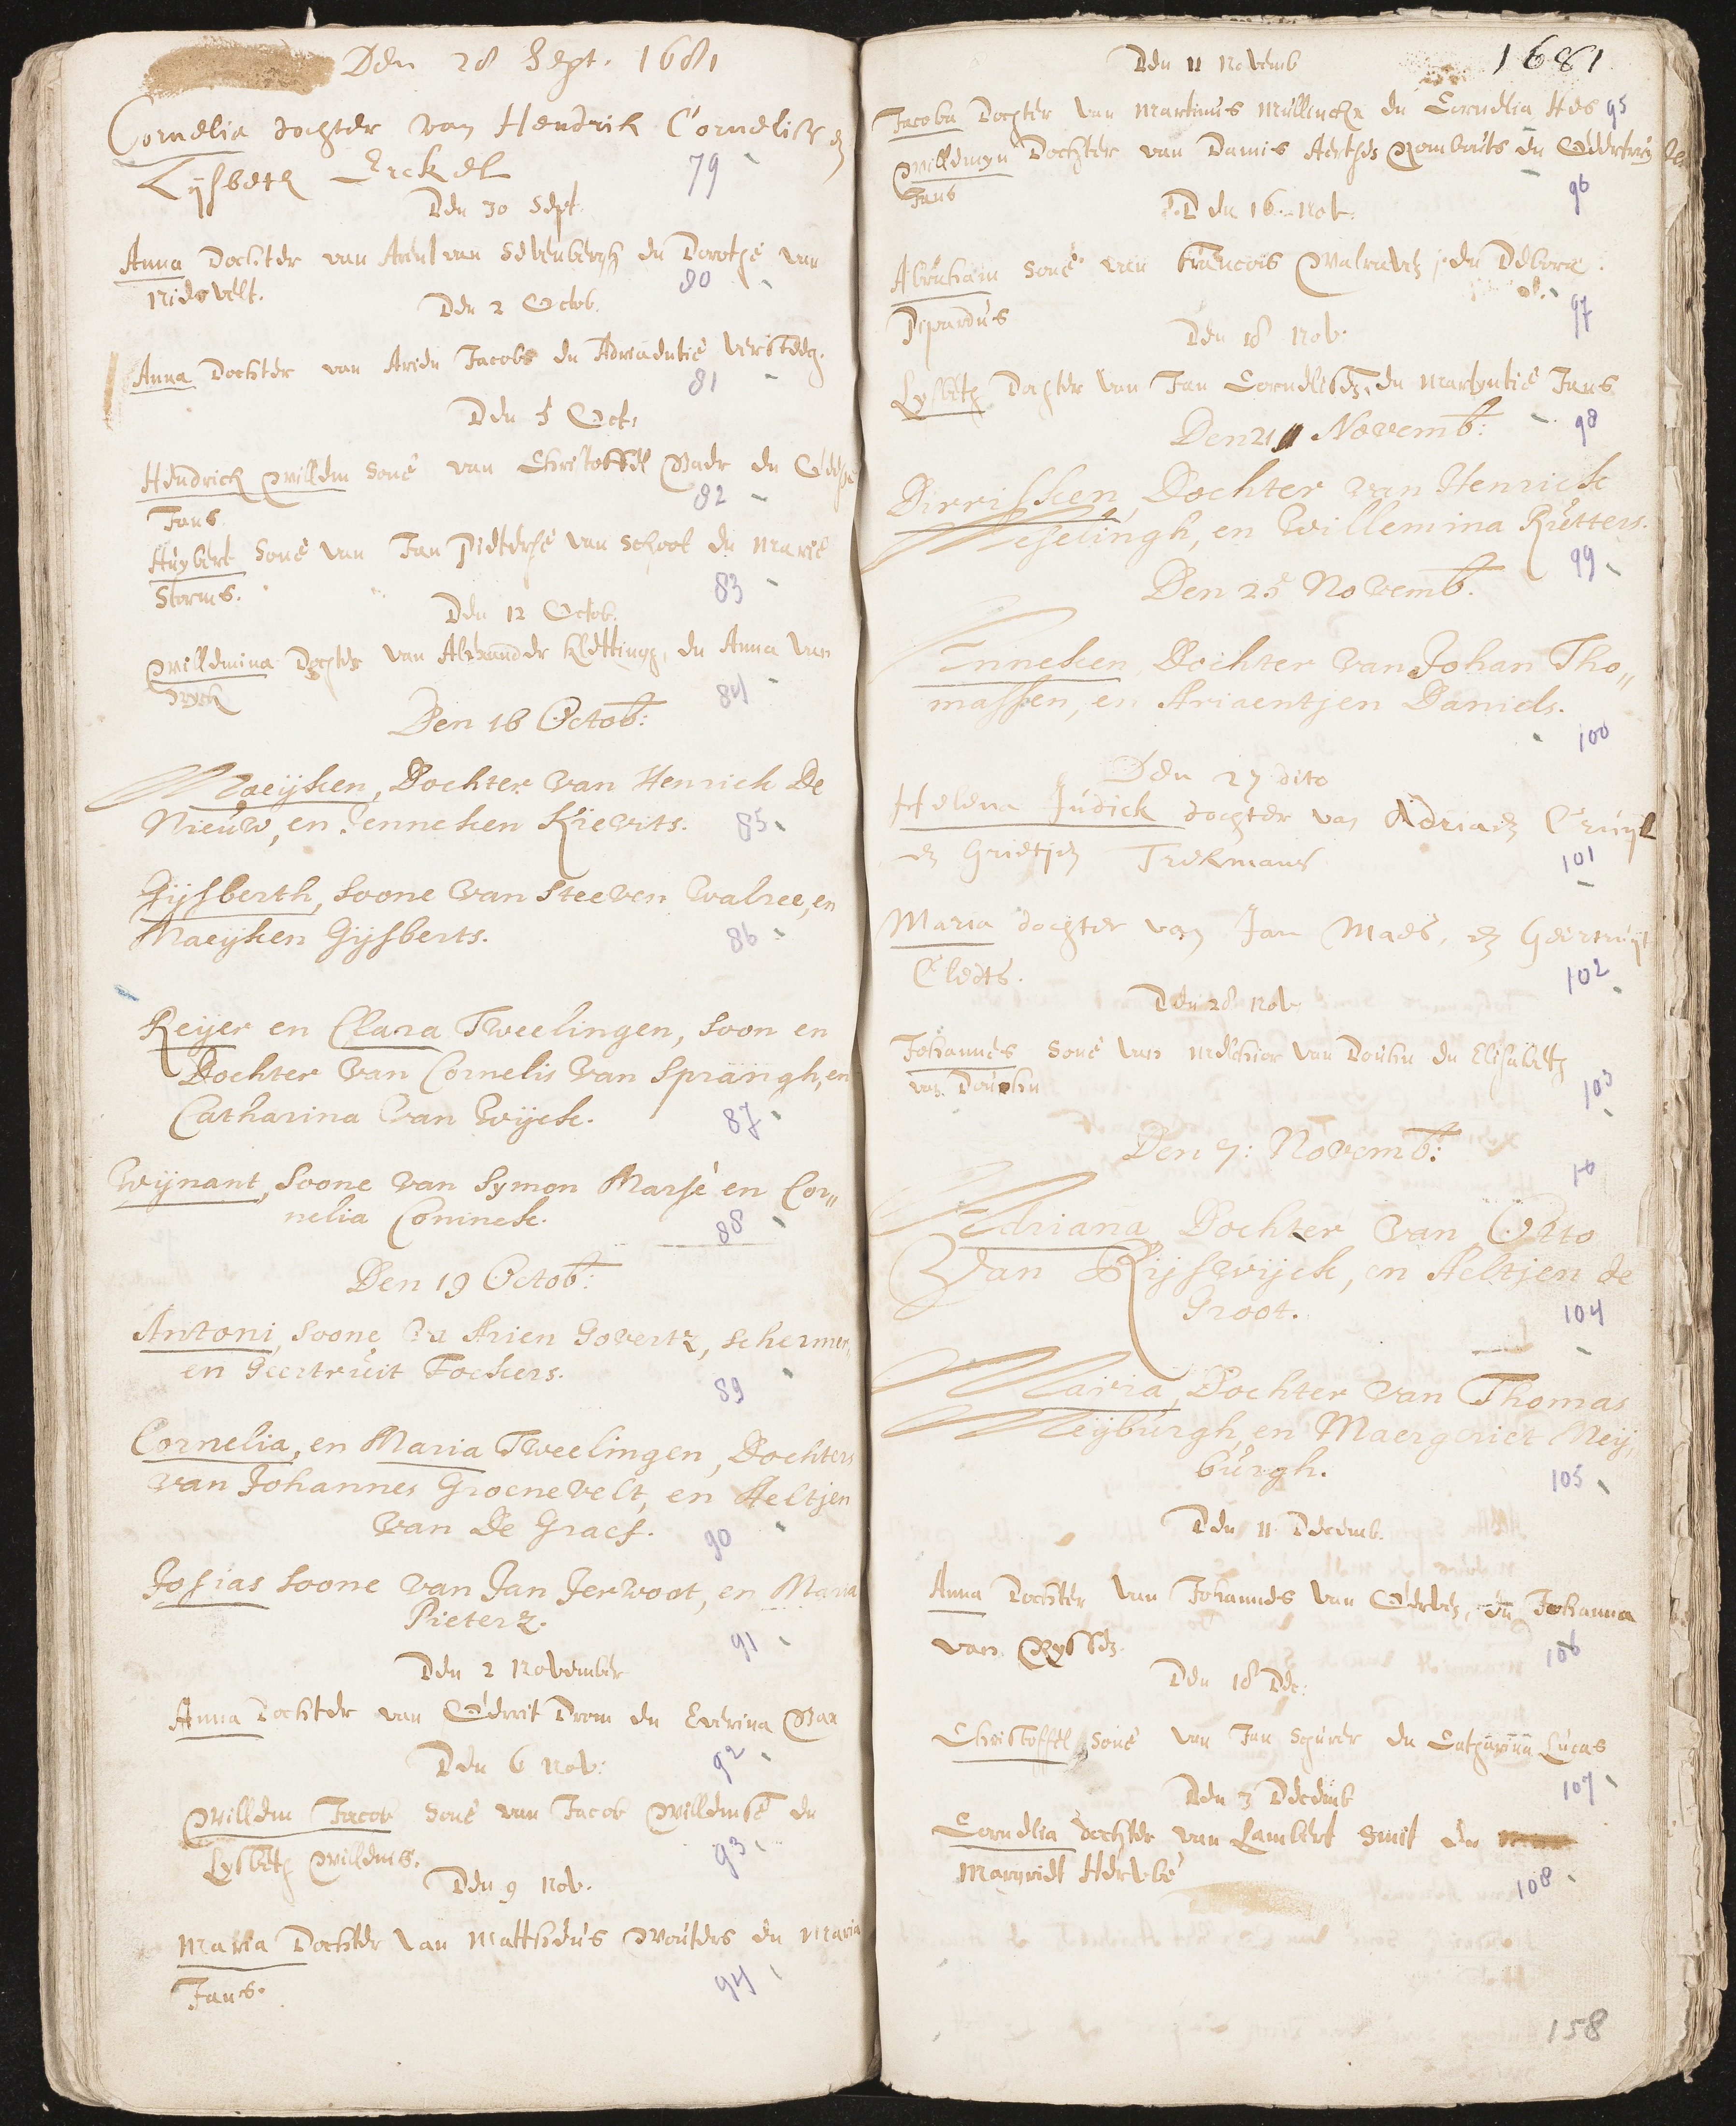 Den 28 Sept. 1681
Cornelia dochter van Hendrik Cornelisse en
Lysbeth Erckel 79
Den 30 Sept.
Anna Dochter van Arent van Sevenbergh en Dorothe van
Nidevelt. 80
Den 2 Octob.
Anna Dochter van Arien Jacobs en Adriaentie versteeg.
81
Den 5 Oct:
Hendrick Willem Sone van Christoffel en
Jans 82
Huybert Sone van Jan Pieterse van Schoot en Marie
Storms. 83
Den 12 Octob.
Willemina Dochter van Alexander Kletting, en Anna van
84
Den 16 Octob:
Maeyken, Dochter van Henrick De
Nieuw, en Jenneken Krevits. 85
Gijsberth, Soone van Steeven Walree, en
Maeyken Gijsberts. 86
Reijer en Clara Tweelingen, Soon en
Dochter van Cornelis van Sprangh, en
Catharina van Wijck. 87
Wijnant, Soone van Symon Marsé en Cor„
nelia Coninck. 88
Den 19 Octob:
Antoni, Soone va Arien Govertz, schermer,
en Geertruit Fockers.
89
Cornelia, en Maria Tweelingen, Dochters
van Johannes Groenevelt, en Aeltjen
van De Graef. 90
Josias Soone van Jan Jerwoot, en Maria
Pieterz.
91
Den 2 November
Anna Dochter van Gerrit Drom en Everina
92
Den 6 Nov:
Willem Jacob Sone van Jacob Willemse en
Lysbeth Willems. 93
Den 9 Nov.
Maria Dochter van Mattheus Wouters en Maria
Jans. 94
Den 11 Novemb 1681
Jacoba Dochter van Martinus Mullincke en Cornelia Hes 95
Willemyn Dochter van Damis Aertses Rombouts en
Jans 96
Den 16 Nov.
Abraham Sone van Francois Walraven, en Debora
Pipardus 97
Den 18 Nov.
Lysbeth Dochter van Jan Cornelisse, en Martyntie Jans
98
Den 21 Novemb:
Dirrisken, Dochter van Henrick
Weselingh, en Willemina Rutters.
99
Den 25 Novemb.
Enneken, Dochter van Johan Tho„
massen, en Ariaentjen Daniels.
100
Den 27 dito
Helena Judick dochter van Adriaen Cruyt
en Grietjen Trekmans 101
Maria dochter van Jan Maes, en Geertruyt
Cleets. 102
Den 28 Nov
Johannes Sone van Melchior van Douhn en Elisabeth
van Douhn 103
Den 7: Novemb:
10
Adriana, Dochter van Otto
Van Rijswijck, en Aeltjen de
Groot. 104
Maria, Dochter van Thomas
Meijburgh, en Maergriet Meij„
burgh. 105
Den 11 Decemb.
Anna Dochter van Johannes van en Johanna
van 106
Den 18 Dec:
Christoffel Sone van Jan Schurer en Catharina Lucas
107
Den 3 Decemb
Cornelia dochter van Lambert Smit en
Margriet Hervbe
108
158